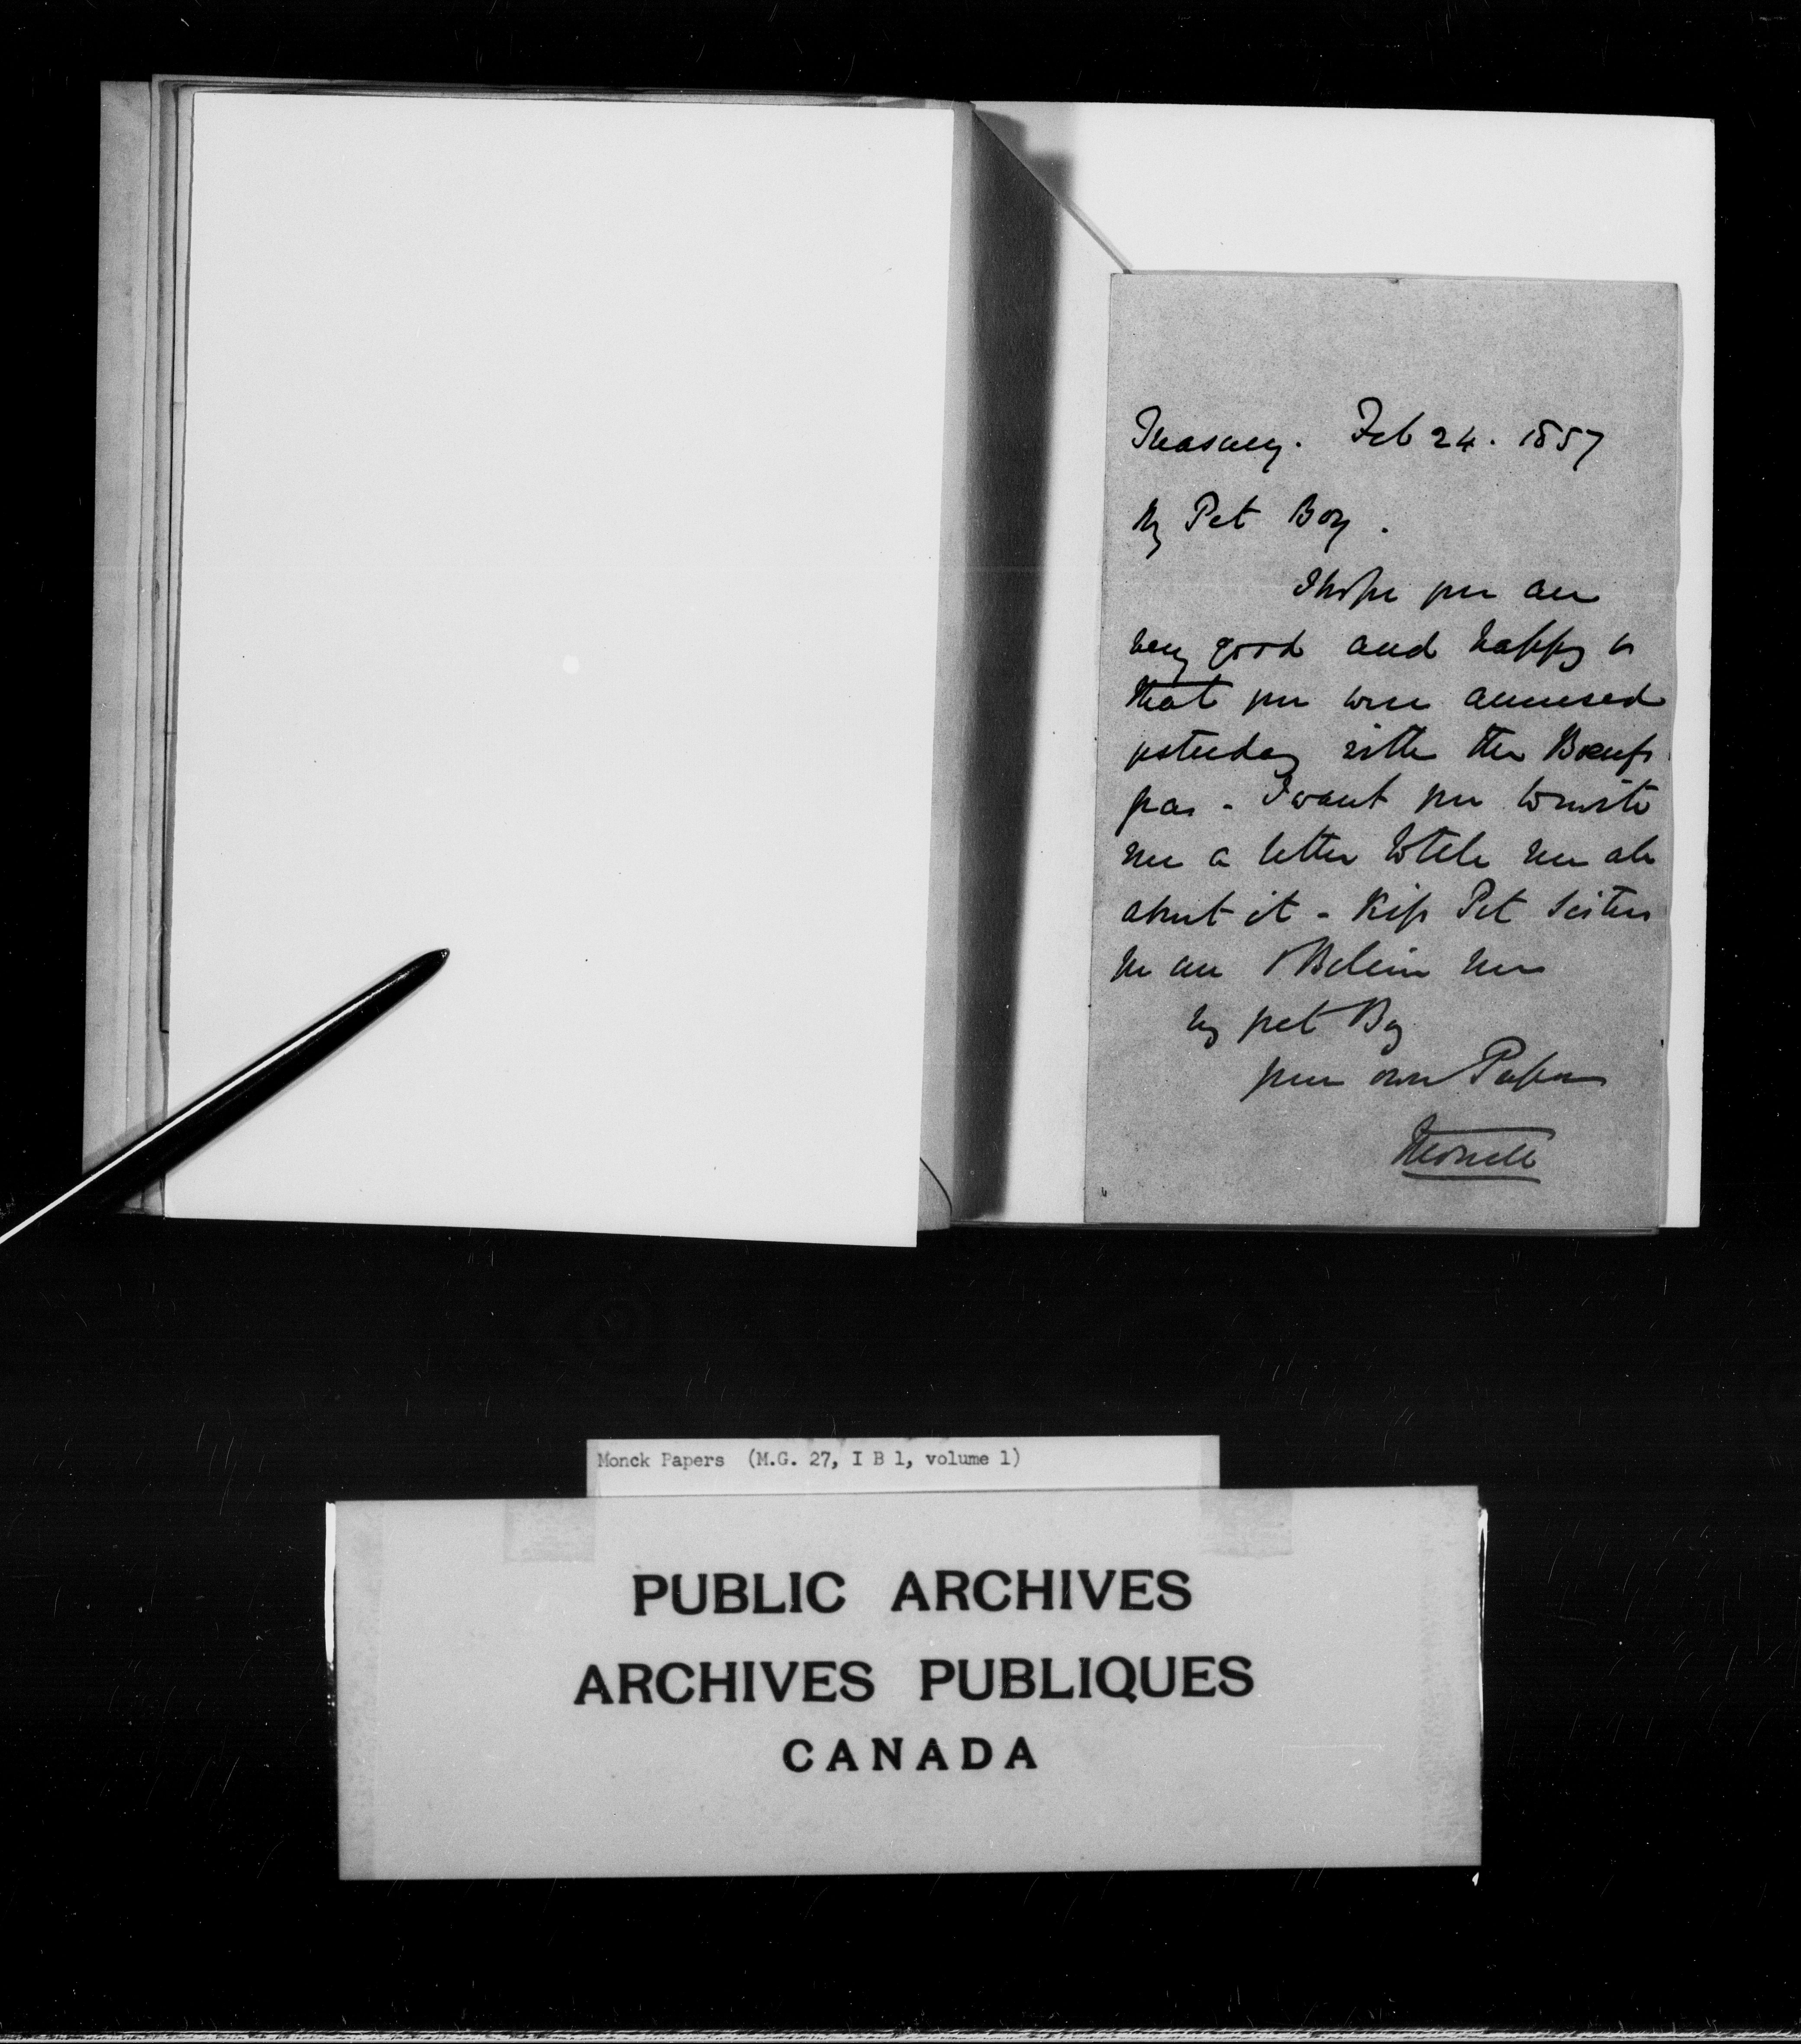 Treasury. Feb 24. 1857
My Pet Boy.
I hope you are
very good and happy &
that you were amused
yesterday with the Boeuf
gras - I want you to write
me a letter to tell me all
about it - Kiss Pet Sisters
for me & Believe me
my pet Boy
your own Papa
Monck
Monck Papers (M.G. 27, I B 1, volume 1)
PUBLIC ARCHIVES
ARCHIVES PUBLIQUES
CANADA